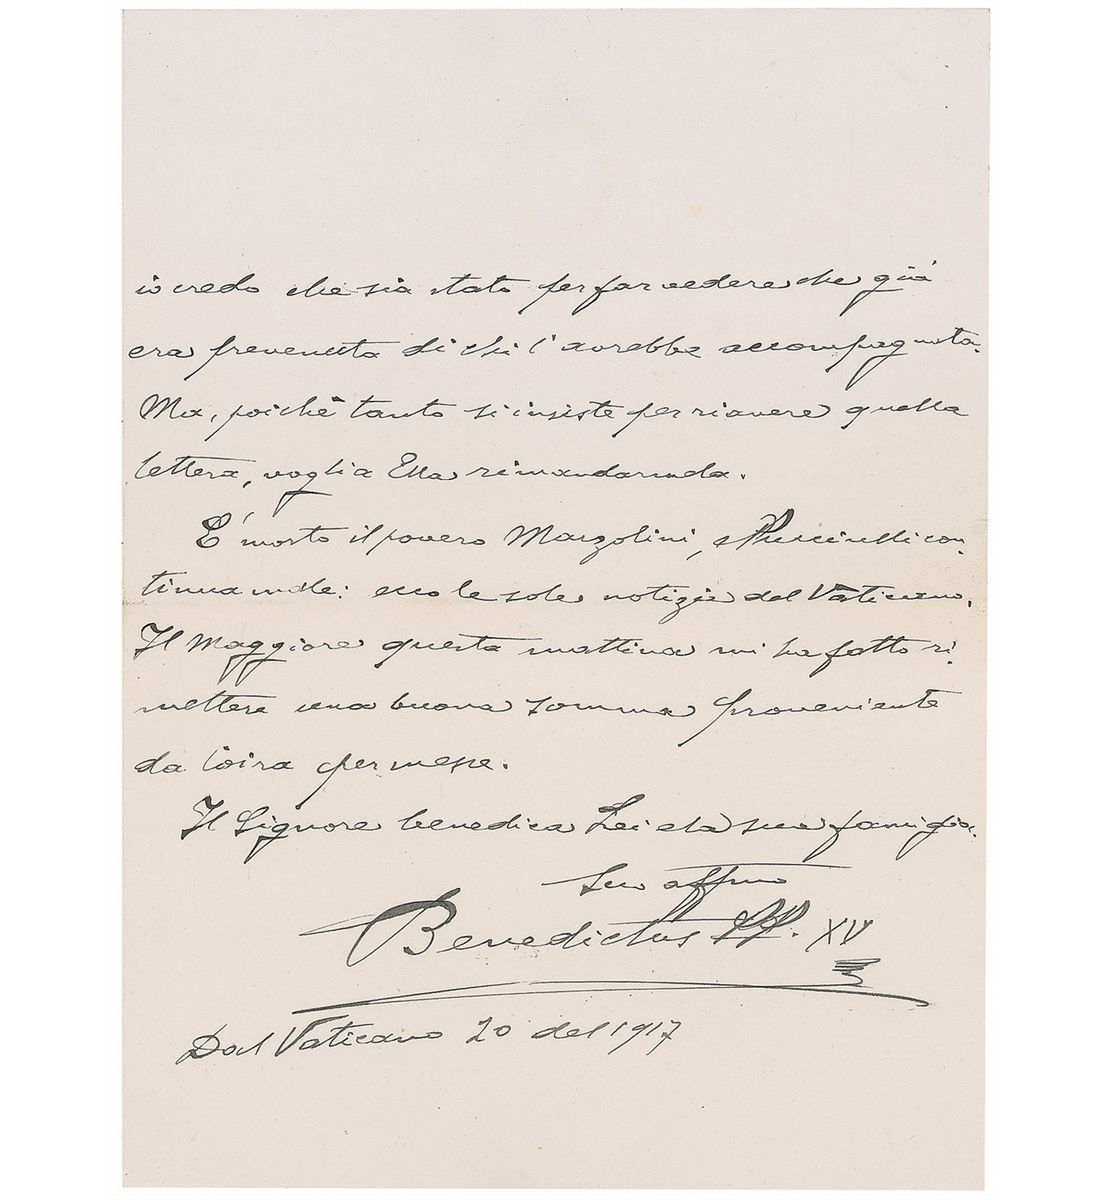 io credo che sia stato per far vedere che già
era prevenuta di chi l'avrebbe accompagnata.
Ma, poichè tanto si insiste per riavere quella
lettera, voglia Ella rimandarmela.
E' morto il povero Marzolini, e Puccinelli con-
tinua male: ecco le sole notizie del Vaticano.
Il Maggiore questa mattina mi ha fatto ri-
mettere una buona somma proveniente
da Coira per messe.
Il Signore benedica Lei e la sua famiglia.
Suo affmo
Benedictus PP. XV
Dal Vaticano 20 del 1917